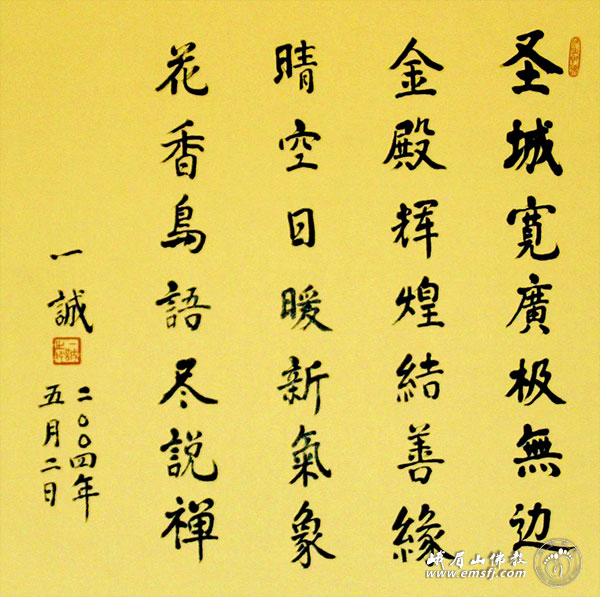 圣城寛廣极無边
金殿辉煌結善緣
晴空日暖新氣象
花香鳥語尽説禅
一誠
二00四年
五月二日
峨眉山佛教
www.emsfj.com